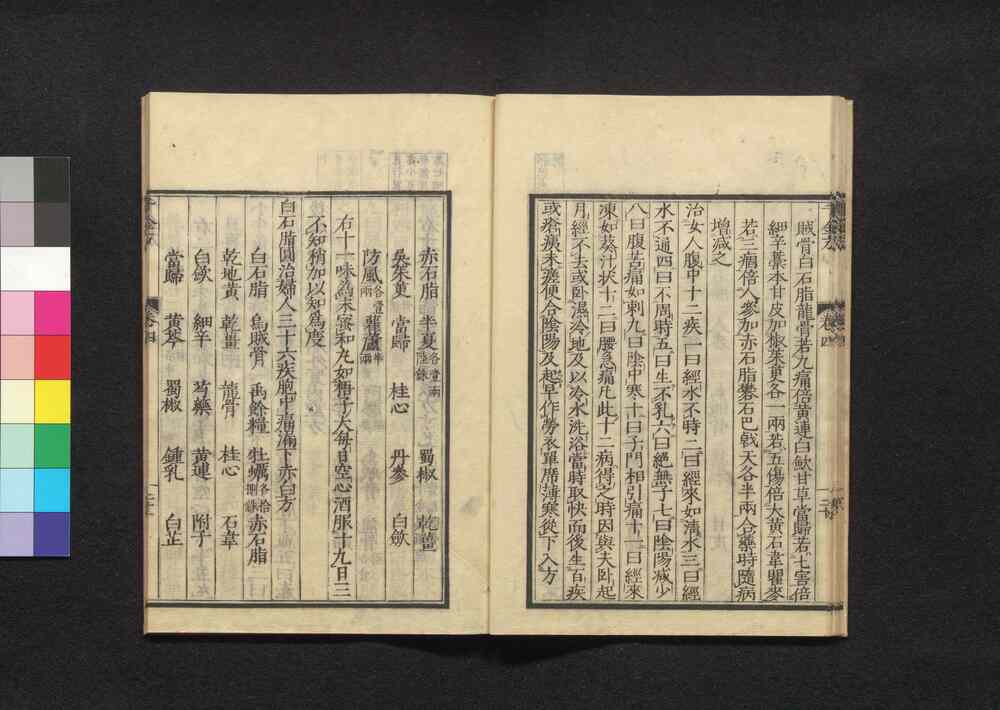 賊骨白石脂龍骨若九痛倍黃連白歛甘草當歸若七害倍
細辛藁本甘皮加椒茱萸各一兩若五傷倍大黃石韋瞿麥
若三痼倍人參加赤石脂礬石巴戟天各半兩合藥時隨病
增減之
治女人腹中十二疾一曰經水不時二曰經來如清水三曰經
水不通四曰不周時五曰生不乳六曰絕無子七曰陰陽減少
八曰腹苦痛如刺九曰陰中寒十曰子門相引痛十一曰經來
凍如葵汁狀十二曰腰急痛凡此十二病得之時因與夫臥起
月經不去或臥濕冷地及以冷水洗浴當時取快而後生百疾
或瘡痍未瘥便合陰陽及起早作勞衣單席薄寒從下入方
千金方
卷四
赤石脂 半夏各壹兩陸銖 蜀椒 乾薑
吳茱萸 當歸 桂心 丹參 白歛
防風各壹兩 藋蘆半兩
右十一味為末蜜和丸如梧子大每日空心酒服十丸日三
不知稍加以知為度
白石脂圓治婦人三十六疾胞中痛漏下赤白方
白石脂 烏賊骨 禹餘糧 牡蠣各拾捌銖 赤石脂
乾地黃 乾薑 龍骨 桂心 石韋
白歛 細辛 芍藥 黃連 附子
當歸 黃芩 蜀椒 鍾乳 白芷
千金方
卷四